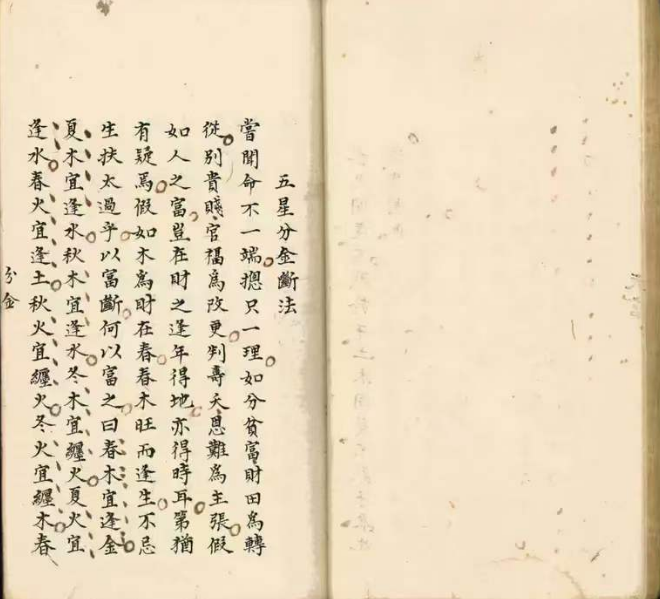 五星分金斷法
嘗聞命不一端摠只一理如分貧富財田為轉
從別貴賤官福為改更判壽夭恩難為主張假
如人之富豈在財之逢年得地亦得時耳第猶
有疑焉假如木為財在春春木旺而逢生不忌
生扶太過乎以富斷何以富之曰春木宜逢金
夏木宜逢水秋木宜逢水冬木宜纏火夏火宜
逢水春火宜逢土秋火宜纏火冬火宜纏木春
分金